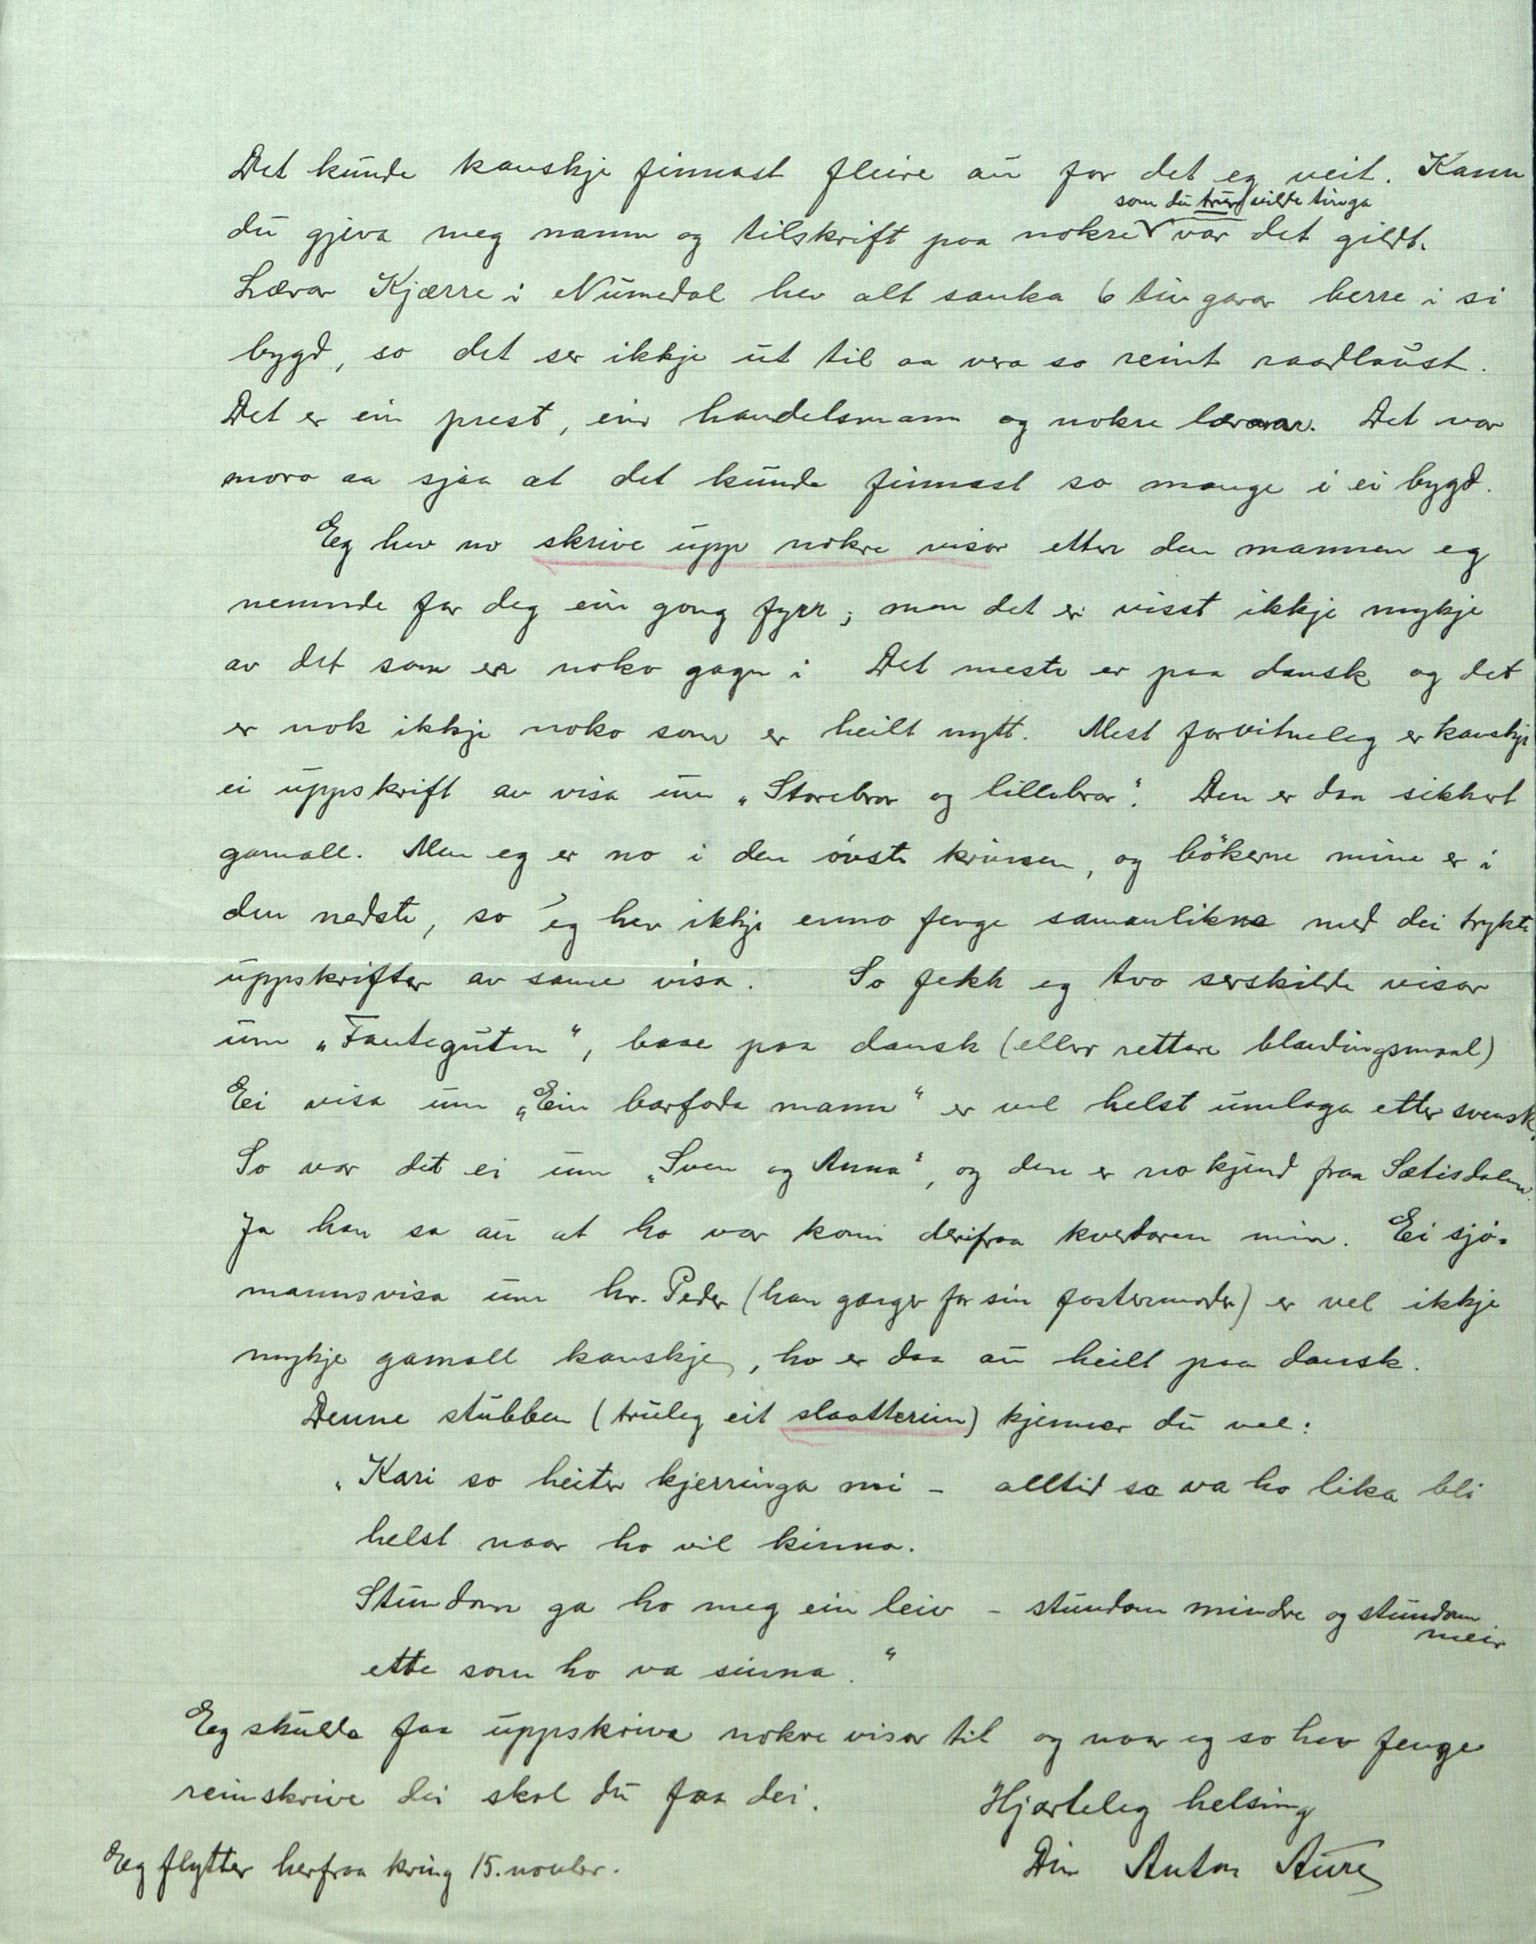 Det kunde kanskje finnast fleire au for det eg veit. Kann
som du trur vilde tinga
du gjeva meg namn og tilskrift paa nokre var det gildt.
Lærar Kjærre i Numedal hev alt sanka 6 tingarar berre i si
bygd, so det ser ikkje ut til aa vera so reint raadlaust.
Det er ein prest, ein handelsmann og nokre lærarar. Det var
moro aa sjaa at det kunde finnast so mange i ei bygd.
Eg hev no skrive upp nokre visor etter den mannen eg
nemnde for deg ein gong fyrr; men det er visst ikkje mykje
av det som er noko gagn i Det meste er paa dansk og det
er nok ikkje noko som er heilt nytt. Mest forvitneleg er kanskje
ei uppskrift av visa um „Storebror og lillebror". Den er daa sikkert
gamall. Men eg er no i den óvste krinsen, og bökerne mine er i
den nedste, so eg hev ikkje enno fenge samanlikna med dei trykte
uppskrifter av same visa. So fekk eg tvo serskilde visor
um „Fanteguten", baae paa dansk (eller rettare blandingsmaal)
Ei visa um „Ein barfoda mann" er vel helst umlaga etter svensk.
So var det ei um „Sven og Anna", og den er no kjend fraa Sætisdalen.
Ja han sa au at ho var komi derifraa kvedaren min. Ei sjó-
mannsvisa um hr. Peder (han gænger for sin fostermoder) er vel ikkje
mykje gamall kanskje, ho er daa au heilt paa dansk.
Denne stubben (truleg eit slaatterim) kjenner du vel:
„Kari so heiter kjerringa mi – alltid so va ho lika bli
helst naar ho vil kinna.
Stundom ga ho meg ein leiv – stundom mindre og stundom
meir
ette som ho va sinna."
Eg skulde faa uppskriva nokre visor til og naar eg so hev fenge
reinskrive dei skal du faa dei.
Hjarteleg helsing
Eg flytter herfraa kring 15. novbr.
Din Anton Aure